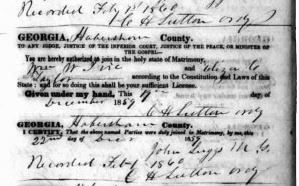 Recorded Feby 1st 1860
C H Sutton ordy
GEORGIA, Habersham County.
TO ANY JUDGE, JUSTICE OF THE INFERIOR COURT, JUSTICE OF THE PEACE, OR MINISTER OF
THE GOSPEL—
You are hereby authorized to join in the holy state of Matrimony,
Wm W and
Taylor according to the Constitution and Laws of this
State: and for so doing this shall be your sufficient License.
Given under my hand. This day of
December 1859
C H Sutton ordy
GEORGIA, Habersham County.
I CERTIFY, That the above named Parties were duly joined in Matrimony, by me, this
22nd day of Decr 1859
John Suggs M. G.
Recorded Feby 1860
C H Sutton ordy